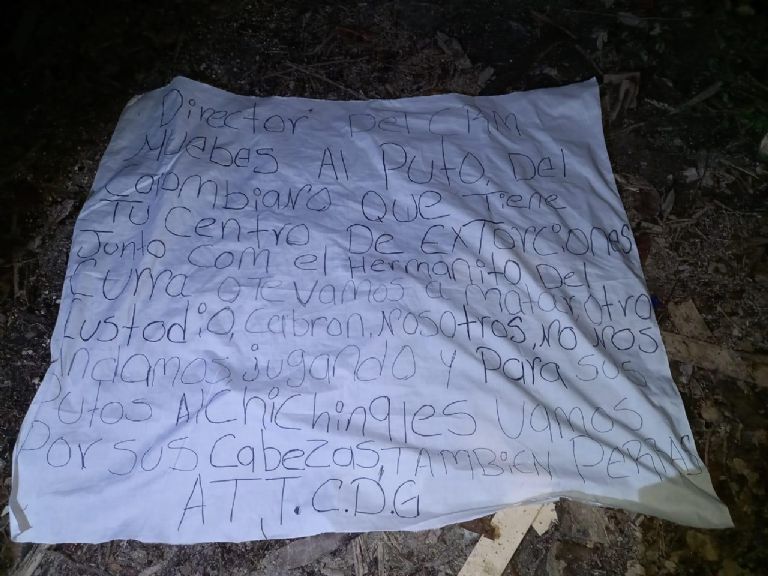 Director Del CRM
Muebes Al Puto, Del
Colombiano Que Tiene
Tu Centro De Extorciones
Junto Com el Hermanito Del
Curra o Te vamos a matar, otro
Custodio, Cabron, Nosotros, No Nos
Andamos jugando y Para sus
Putos Alchichingles Vamos
Por sus Cabezas, TAMBIEN PERRAS
ATT, T. C.D.G